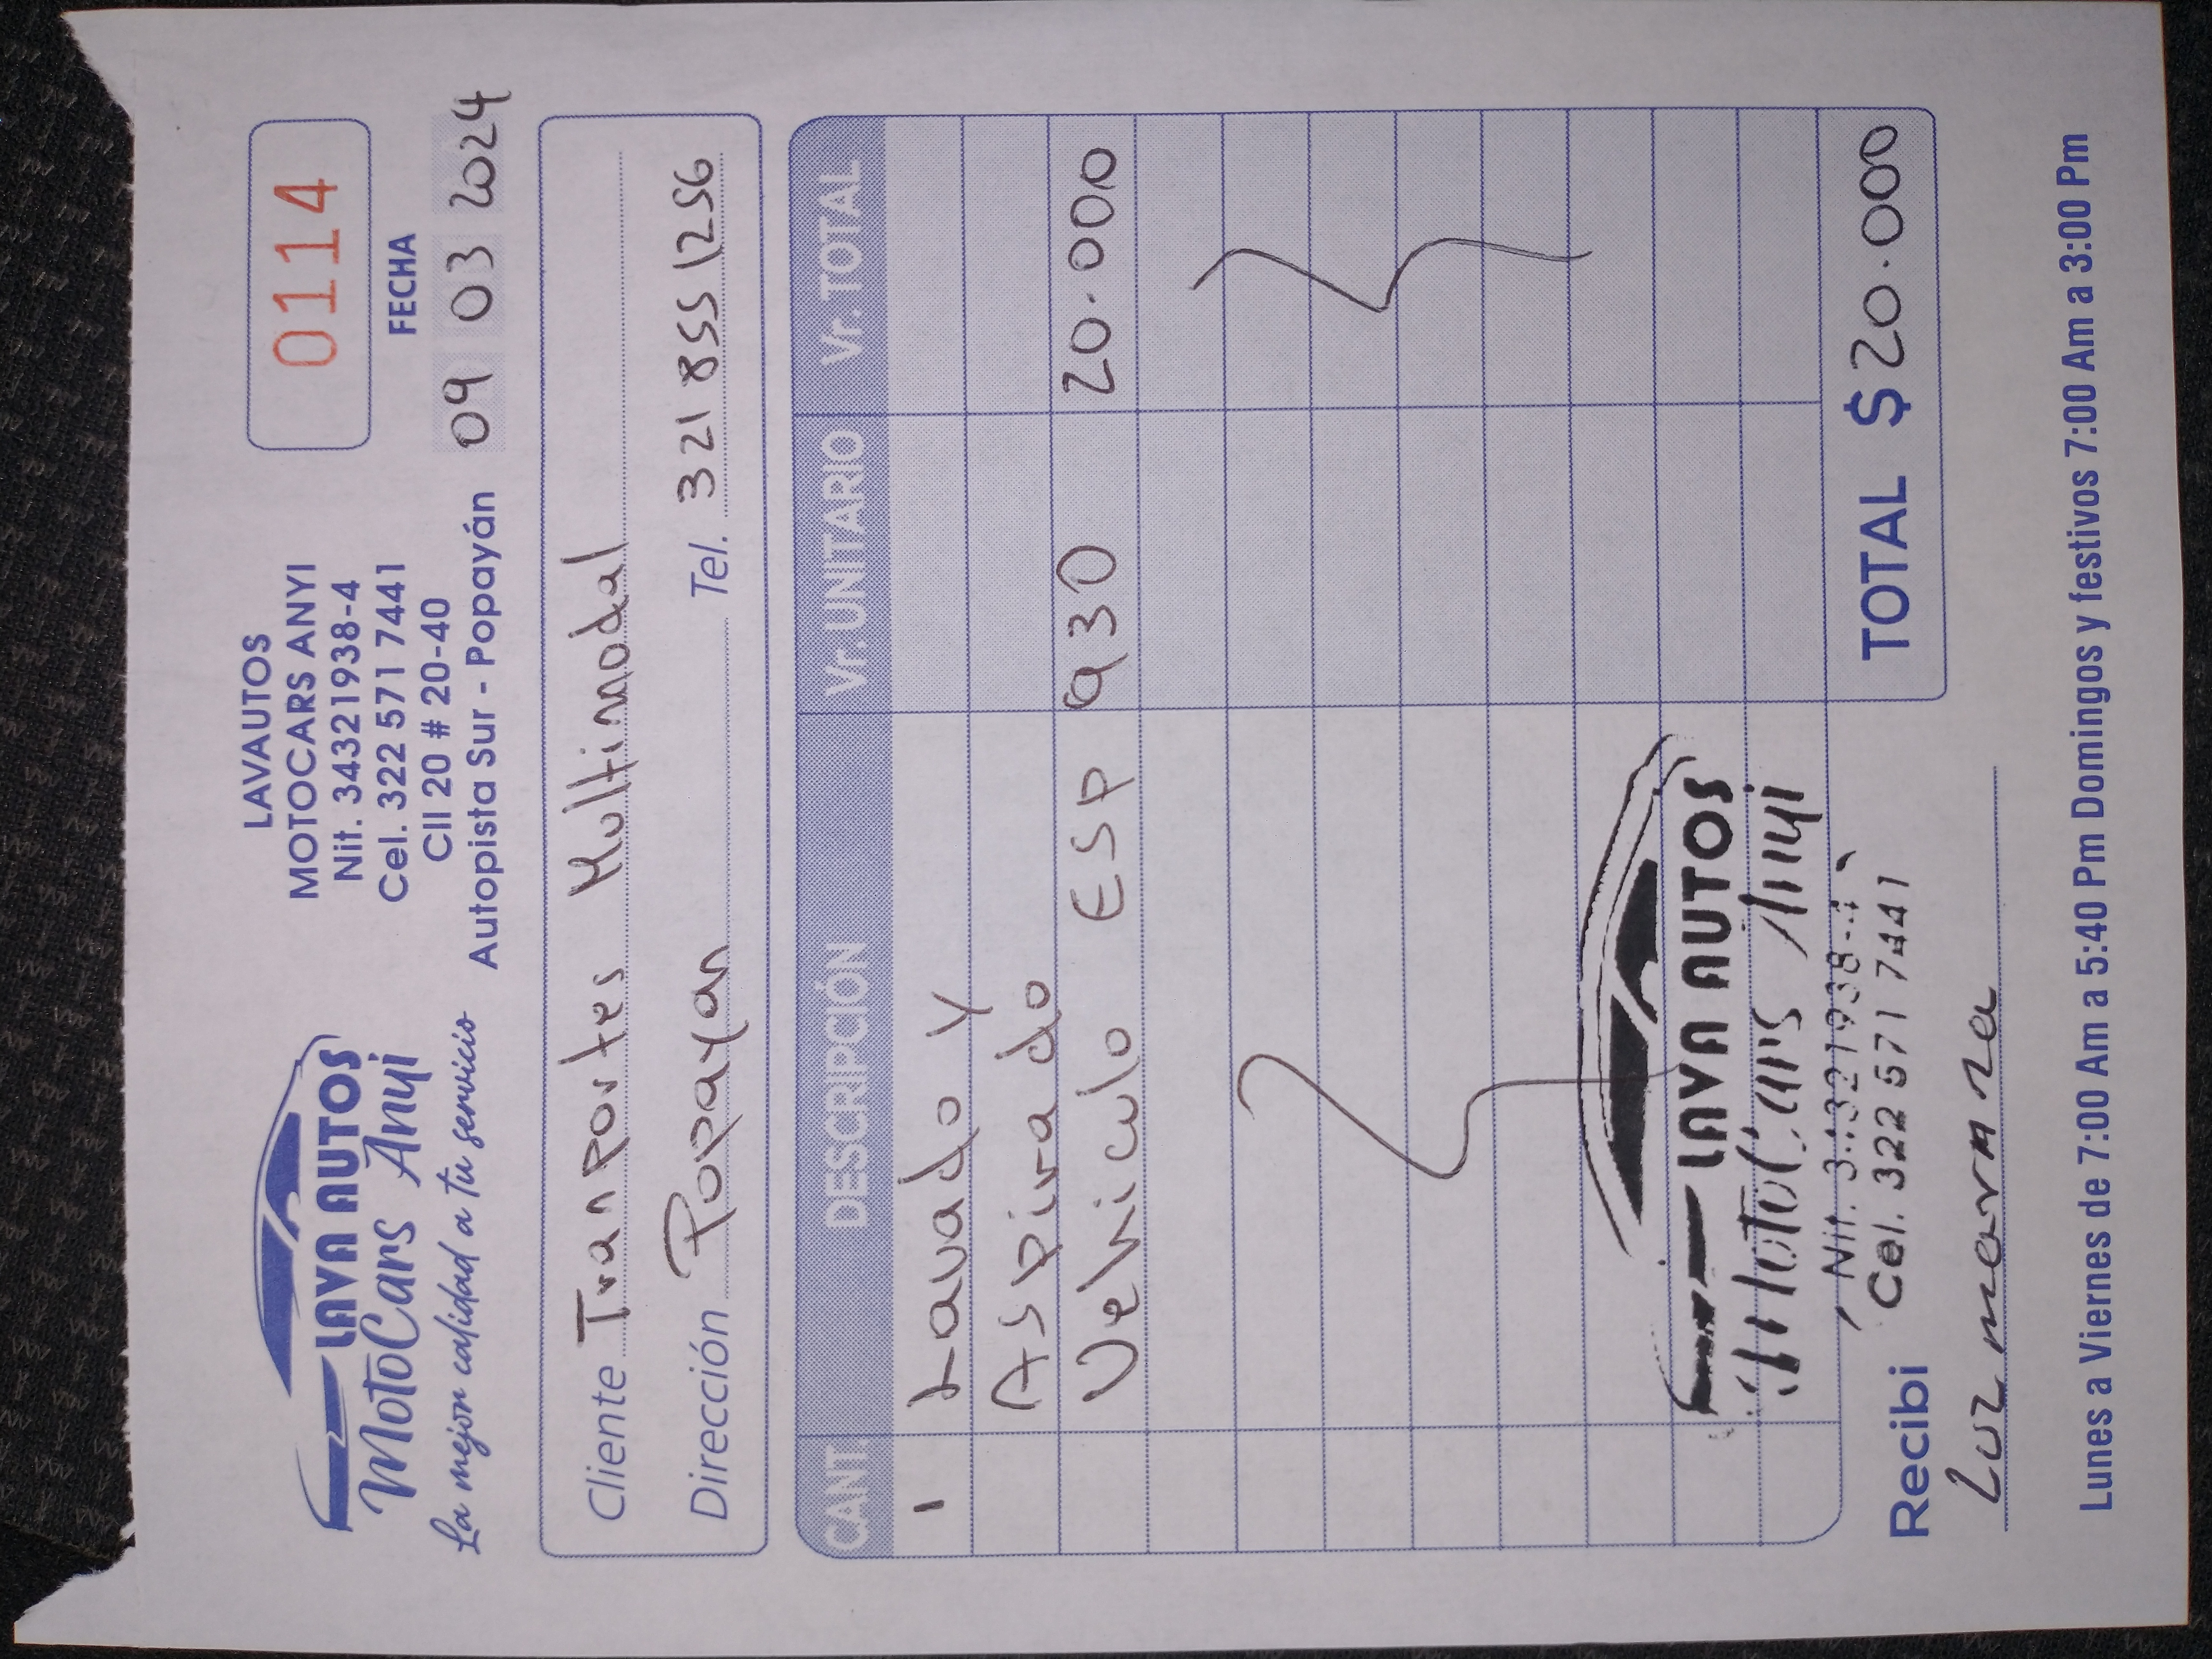 LAVA AUTOS
MotoCars Anyi
La mejor calidad a tu servicio
LAVAUTOS
MOTOCARS ANYI
Nit. 34321938-4
Cel. 322 571 7441
Cll 20 # 20-40
Autopista Sur - Popayán
0114
FECHA
09 03 2024
Cliente Tranportes Multimodal
Dirección Popayan Tel. 321 855 1256
CANT. DESCRIPCIÓN Vr. UNITARIO Vr. TOTAL
1 Lavado Y
Aspirado
Vehiculo ESP 930 20.000
LAVA AUTOS
MotoCars Anyi
Nit. 34321938-4
Cel. 322 571 7441
TOTAL $ 20.000
Recibi
Luz
Lunes a Viernes de 7:00 Am a 5:40 Pm Domingos y festivos 7:00 Am a 3:00 Pm